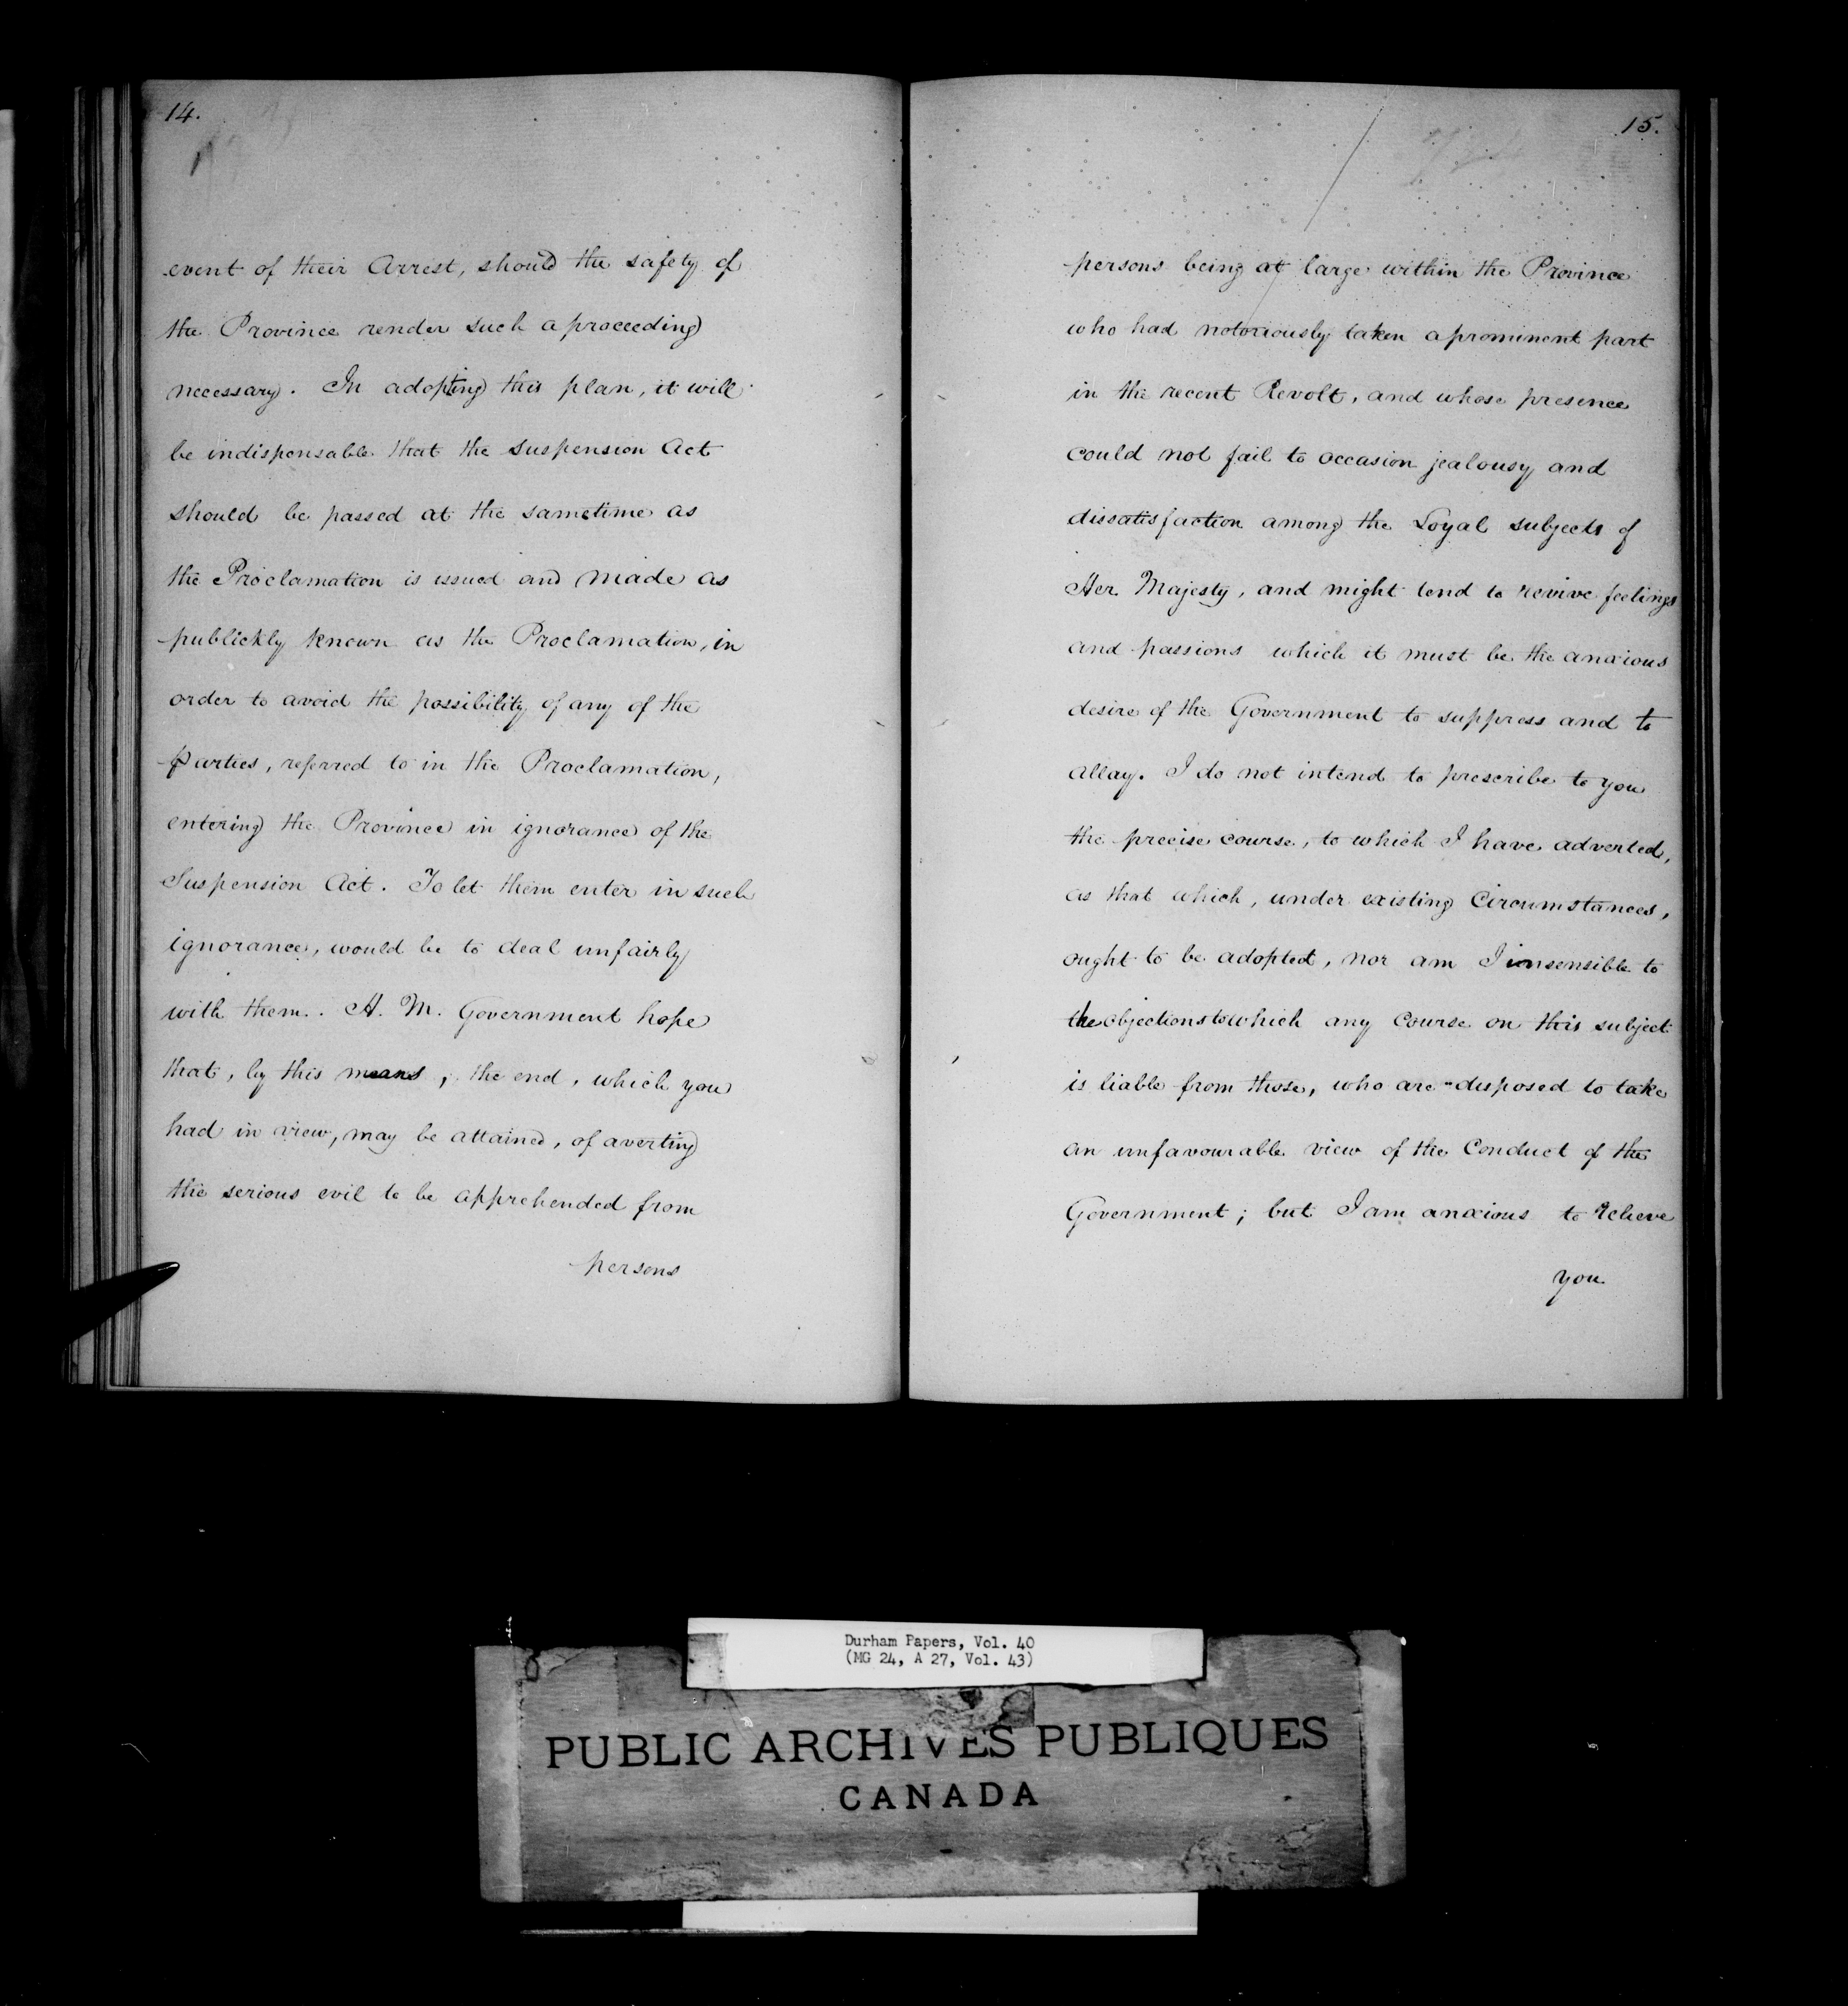 14.
event of their Arrest, should the safety of
the Province render such a proceeding
necessary. In adopting this plan, it will
be indispensable that the Suspension Act
should be passed at the sametime as
the Proclamation is issued and made as
publickly known as the Proclamation, in
order to avoid the possibility of any of the
parties, referred to in the Proclamation,
entering the Province in ignorance of the
Suspension Act. To let them enter in such
ignorance, would be to deal unfairly
with them. H. M. Government hope
that, by this means, the end, which you
had in view, may be attained, of averting
the serious evil to be apprehended from
persons
15.
persons being at large within the Province
who had notoriously taken a prominent part
in the recent Revolt, and whose presence
could not fail to occasion jealousy and
dissatisfaction among the Loyal subjects of
Her Majesty, and might tend to revive feelings
and passions which it must be the anxious
desire of the Government to suppress and to
allay. I do not intend to prescribe to you
the precise course, to which I have adverted,
as that which, under existing Circumstances,
ought to be adopted, nor am I insensible to
the objections to which any Course on this subject
is liable from those, who are disposed to take
an unfavourable view of the Conduct of the
Government; but I am anxious to relieve
you
Durham Papers, Vol. 40
(MG 24, A 27, Vol. 43)
PUBLIC ARCHIVES PUBLIQUES
CANADA